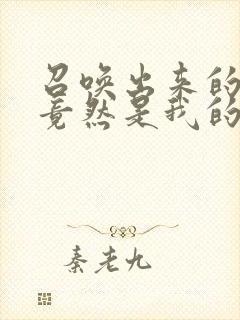 召唤出来的
竟然是我的
秦老九